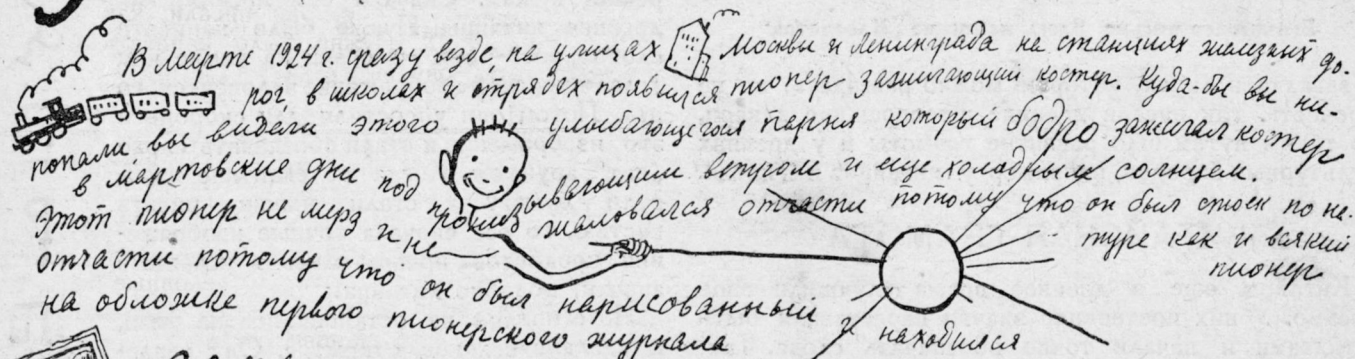 В Марте 1924 г. сразу везде, на улицах Москвы и Ленинграда на станциях железных до-
рог, в школах и отрядах появился пионер зажигающий костер. Куда-бы вы ни-
попали, вы видели этого улыбающегося парня который бодро зажигал костер
в мартовские дни под пронизывающим ветром и еще холодным солнцем.
Этот пионер не мерз и не жаловался отчасти потому что он был стоек по на-
туре как и всякий
пионер
отчасти потому что он был нарисованный
на обложке первого пионерского журнала
находился